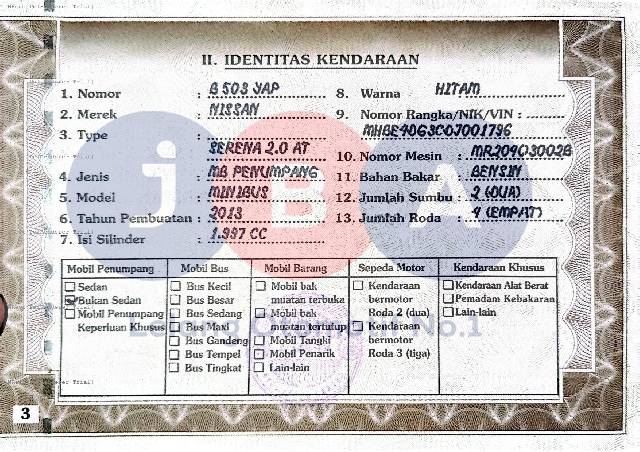 II. IDENTITAS KENDARAAN
1. Nomor : B 503 JAP
2. Merek : NISSAN
3. Type :
SERENA 2.0 AT
4. Jenis : MB PENUMPANG
5. Model : MINIBUS
6. Tahun Pembuatan : 2013
7. Isi Silinder : 1.997 CC
8. Warna HITAM
9. Nomor Rangka/NIK/VIN :
10. Nomor Mesin :
11. Bahan Bakar : BENSIN
12. Jumlah Sumbu : 2 (DUA)
13. Jumlah Roda : 4 (EMPAT)
jBA
Lelang Otomotif No.1
Mobil Penumpang
Sedan
Bukan Sedan
Mobil Penumpang
Keperluan Khusus
Mobil Bus
Bus Kecil
Bus Besar
Bus Sedang
Bus Maxi
Bus Gandeng
Bus Tempel
Bus Tingkat
Mobil Barang
Mobil bak
muatan terbuka
Mobil bak
muatan tertutup
Mobil Tangki
Mobil Penarik
Lain-lain
Sepeda Motor
Kendaraan
bermotor
Roda 2 (dua)
Kendaraan
bermotor
Roda 3 (tiga)
Kendaraan Khusus
Kendaraan Alat Berat
Pemadam Kebakaran
Lain-lain
3